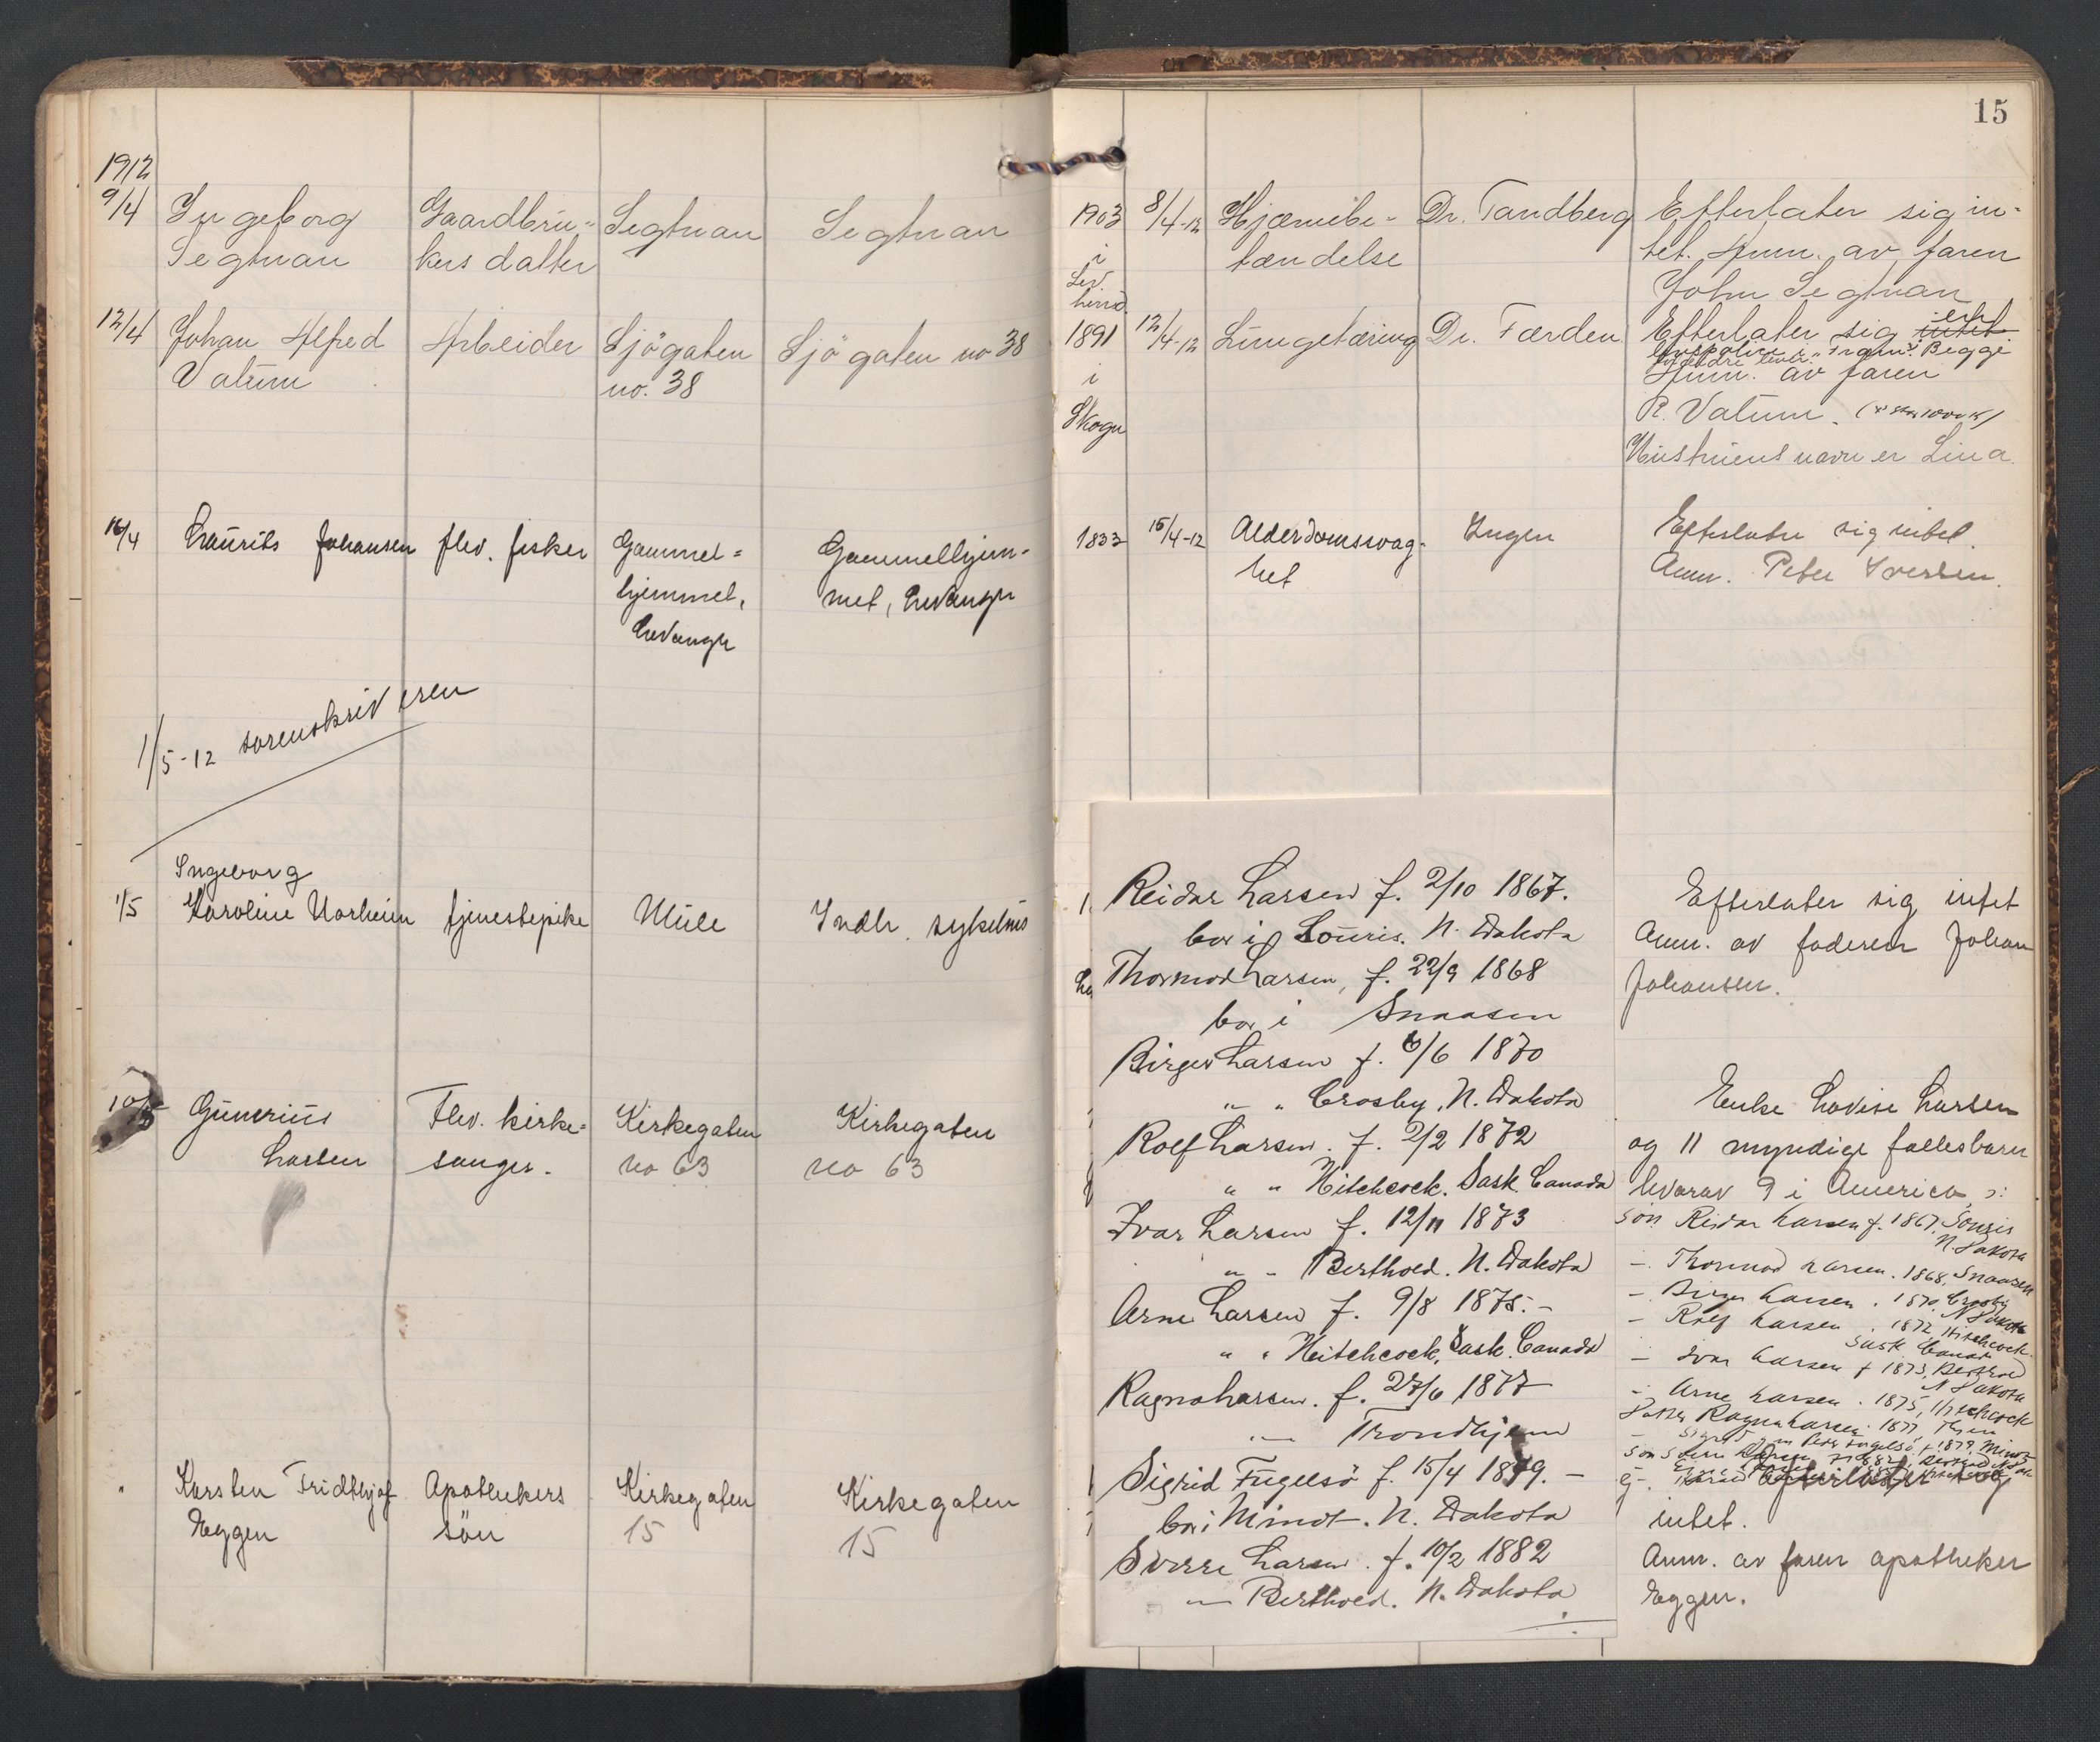 15
1912
9/4 Ingeborg Gaardbru- Segtnan Segtnan 1903 8/4-12 Hjærnebe- Dr. Tandberg Efterlater sig in-
Segtnan kers datter i tændelse tet. Anm. av faren
Lev. herred John Segtnan
12/4 Johan Alfred Arbeider Sjögaten Sjögaten no 38 1891 12/4-12 Lungetæring Dr. Færden Efterlater sig intet
Begge
forældre lever
Valum no. 38 i Anm. av faren
Skogn R. Valum.
Hustruens navn er Lina.
16/4 Laurits Johansen flev. fisker Gammel- Gammelhjem- 1833 15/4-12 Alderdomssvag- Ingen Efterlater sig intet.
hjemmet, met, Levanger het Anm. Peter Iversen.
Levanger
1/5-12 sorenskriveren
Ingeborg
1/5 Karoline Norheim tjenestepike Mule Indh. sykehus Efterlater sig intet
Anm. av faderen Johan
Johansen.
10/5 Gunerius Flev. kirke- Kirkegaten Kirkegaten Enke Lovise Larsen
Larsen sanger. no 63 no 63 og 11 myndige fællesbarn
hvorav 9 i America
sön Reidar Larsen f. 1867, Souris
N. Dakota
- Thormod Larsen. 1868, Snaasen
- Birger Larsen. 1870, Crosby
N Dakota
- Rolf Larsen. 1872, Hitchcock
Sask Canada
- Ivar Larsen f 1873, Berthold
N Dakota
- Arne Larsen. 1875, Hitchcock
Datter Ragna Larsen 1877, Thjem
" Karsten Fridthjof Apothekers Kirkegaten Kirkegaten Efterlater sig
Eggen sön 15 15 intet.
Anm. av faren apotheker
Eggen.
Reidar Larsen f. 2/10 1867.
bor i Souris. N. Dakota
Thormod Larsen, f. 22/9 1868
bor i Snaasen
Birger Larsen f. 6/6 1870
" " Crosby, N. Dakota
Rolf Larsen. f. 2/2 1872
" " Hitchcock. Sask. Canada
Ivar Larsen f. 12/11 1873
" - Berthold. N. Dakota
Arne Larsen f. 9/8 1875. -
" " Hitchcock, Sask. Canada
Ragna Larsen. f. 27/6 1877
" Trondhjem
Sigrid Fugelsö f. 15/4 1879. -
bor i Minot. N. Dakota
Sverre Larsen. f. 10/2 1882
" Berthold. N. Dakota